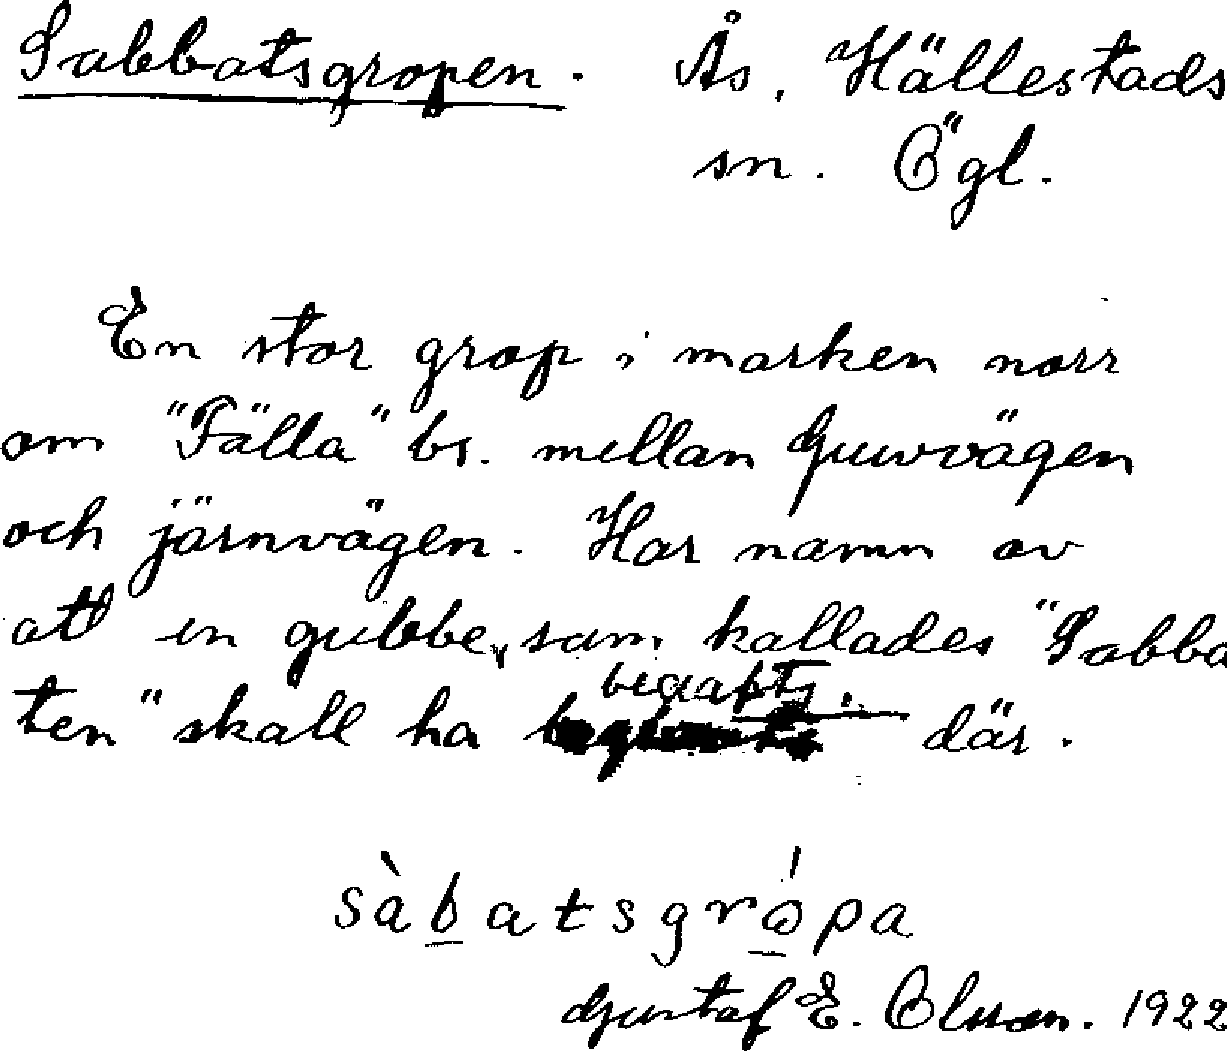 Sabbatsgropen. Ås, Hällestads
sn. Ögl.
En stor grop i marken norr
om "Fälla" bs. mellan Gruvvägen
och järnvägen. Har namn av
att en gubbe, som kallades "Sabba
ten" skall ha begavts där.
sàbatsgrópa
Gustaf E. Olsson. 1922